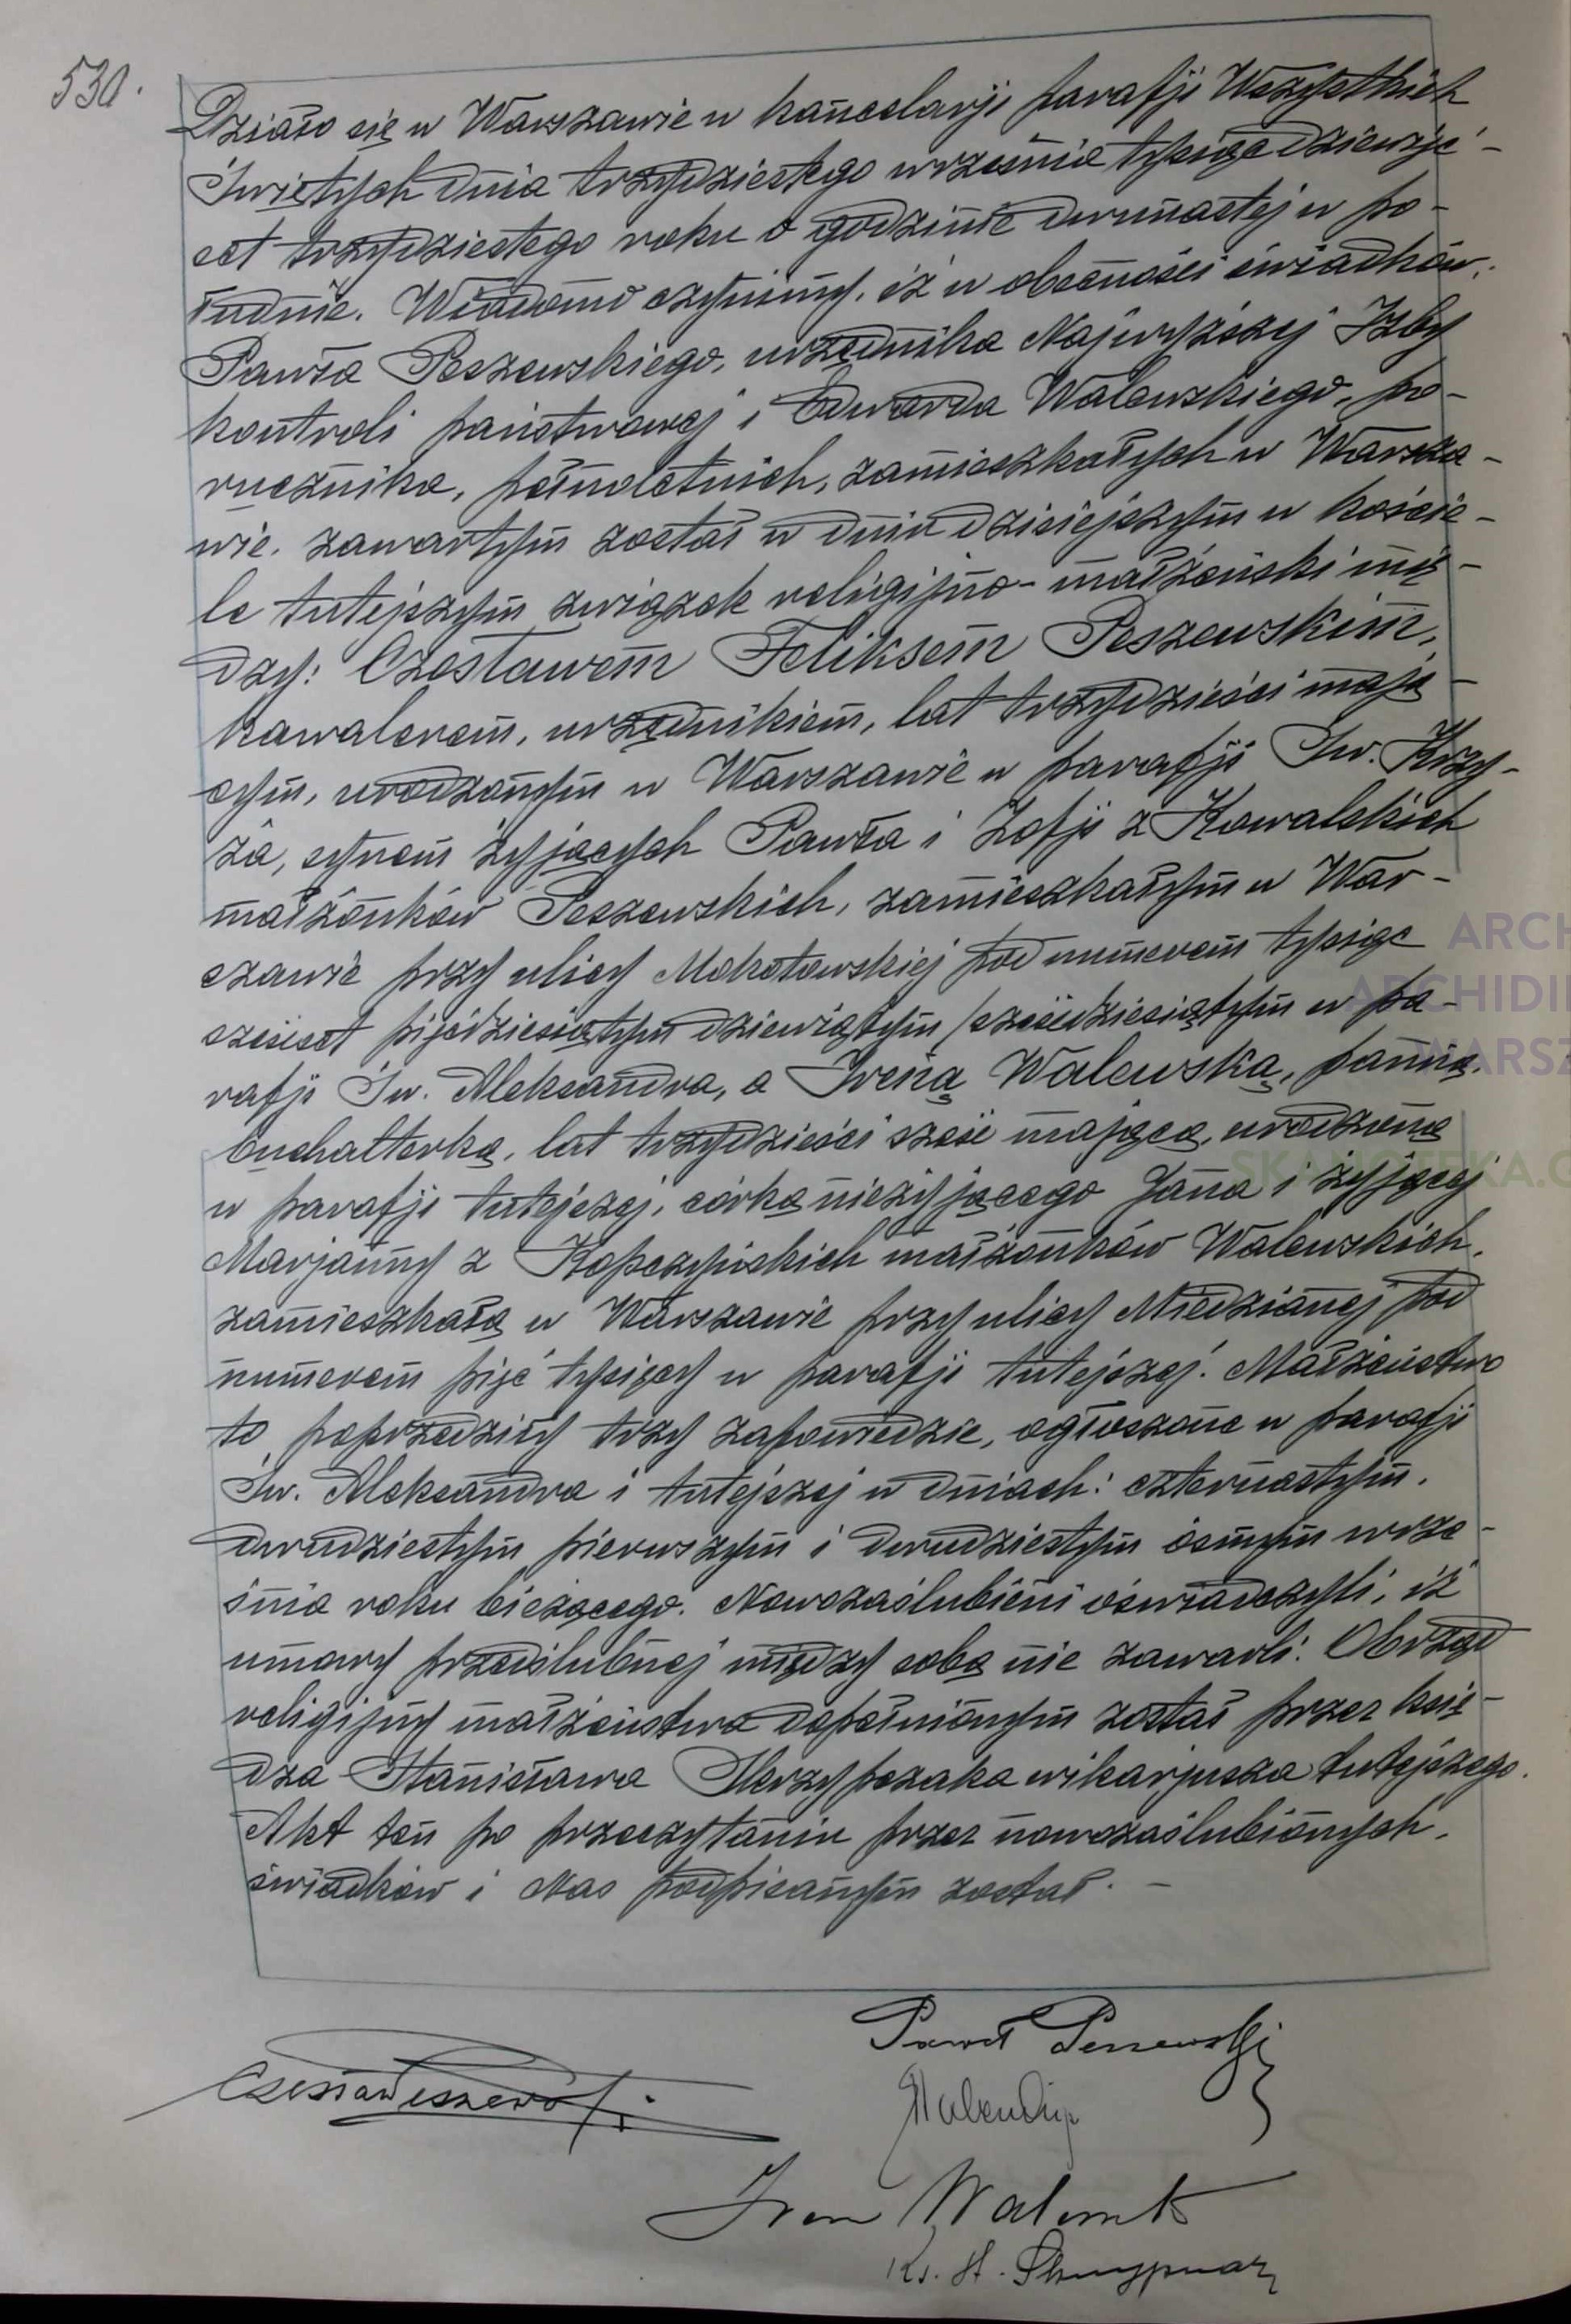 530.
Działo się w Warszawie w kancelarji parafji Wszystkich
Świętych dnia trzydziestego września tysiąc dziewięć-
set trzydziestego roku o godzinie dwunastej w po-
łudnie. Wiadomo czynimy, iż w obecności świadków:
Pawła Peszewskiego, urzędnika Najwyższej Izby
kontroli państwowej i Edwarda Walewskiego, po-
rucznika, pełnoletnich, zamieszkałych w Warsza-
wie, zawartym został w dniu dzisiejszym w koście-
le tutejszym związek religijno-małżeński mię-
dzy: Czesławem Feliksem Peszewskim,
kawalerem, urzędnikiem, lat trzydzieści mają-
cym, urodzonym w Warszawie w parafji Św. Krzy-
ża, synem żyjących Pawła i Zofji z Kowalskich
małżonków Peszewskich, zamieszkałym w War-
szawie przy ulicy Mokotowskiej pod numerem tysiąc
sześset pięćdziesiątym dziewiątym /sześdziesiątym w pa-
rafji Św. Aleksandra, a Ireną Walewską, panną,
buchalterką, lat trzydzieści sześć mającą, urodzoną
w parafji tutejszej, córką nieżyjącego Jana i żyjącej
Marjanny z Kopczyńskich małżonków Walewskich,
zamieszkałą w Warszawie przy ulicy Miedzianej pod
numerem pięć tysięcy w parafji tutejszej. Małżeństwo
to poprzedziły trzy zapowiedzie, ogłoszone w parafji
Św. Aleksandra i tutejszej w dniach: czternastym,
dwudziestym pierwszym i dwudziestym ósmym wrze-
śnia roku bieżącego. Nowozaślubieni oświadczyli, iż
umowy przedślubnej między sobą nie zawarli. Obrząd
religijny małżeństwa dopełnionym został przez księ-
dza Stanisława Skrzypczaka wikarjusza tutejszego.
Akt ten po przeczytaniu przez nowozaślubionych,
świadków i Nas podpisanym został. -
Paweł Peszewski
Czesław Peszewski
EWalewski
Irena Walewska
Ks. St. Skrzypczak
ARCH
ARCHIDI
WARSZ
SKANOTEKA.